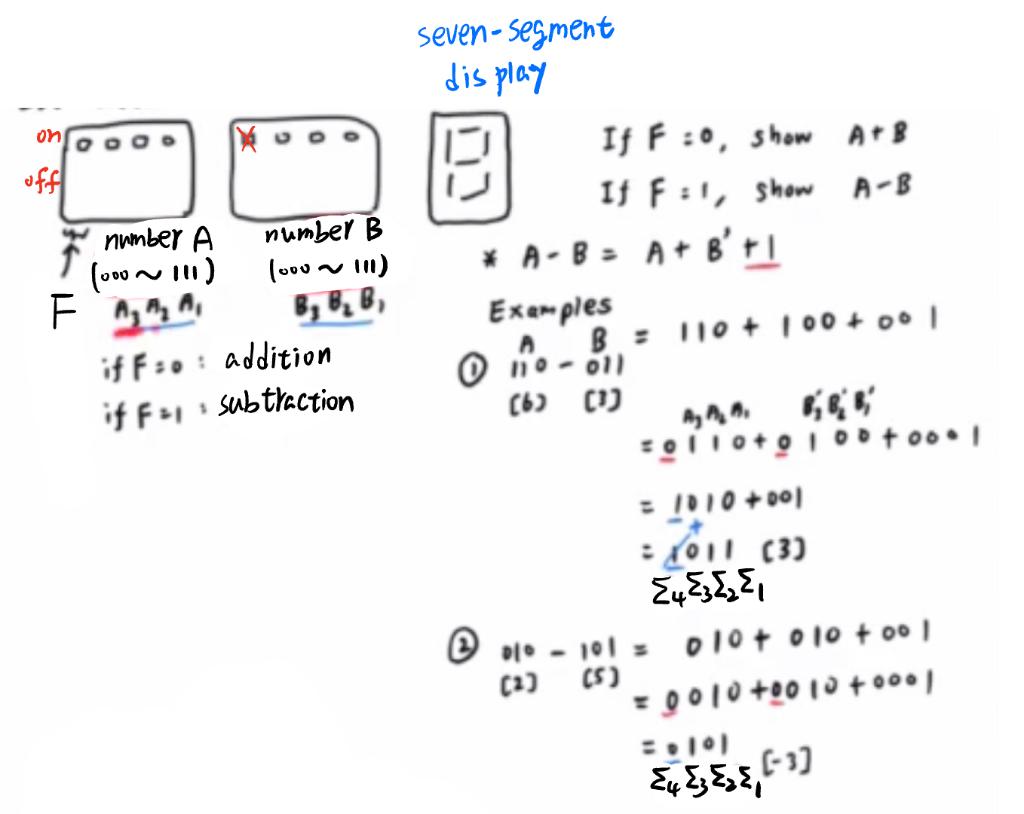 seven-segment
display
on
off
number A
(000 ~ 111)
A₃ A₂ A₁
F
number B
(000 ~ 111)
B₃ B₂ B₁
if F=0 : addition
if F=1 : subtraction
If F = 0, show A + B
If F = 1, show A - B
* A - B = A + B' + 1
Examples
A B
① 110 - 011 = 110 + 100 + 001
(6) (3)
A₃A₂A₁ B₃'B₂'B₁'
= 0110 + 0100 + 0001
= 1010 + 001
= 1011 (3)
Σ₄Σ₃Σ₂Σ₁
② 010 - 101 = 010 + 010 + 001
(2) (5)
= 0010 + 0010 + 0001
= 0101 (-3)
Σ₄Σ₃Σ₂Σ₁